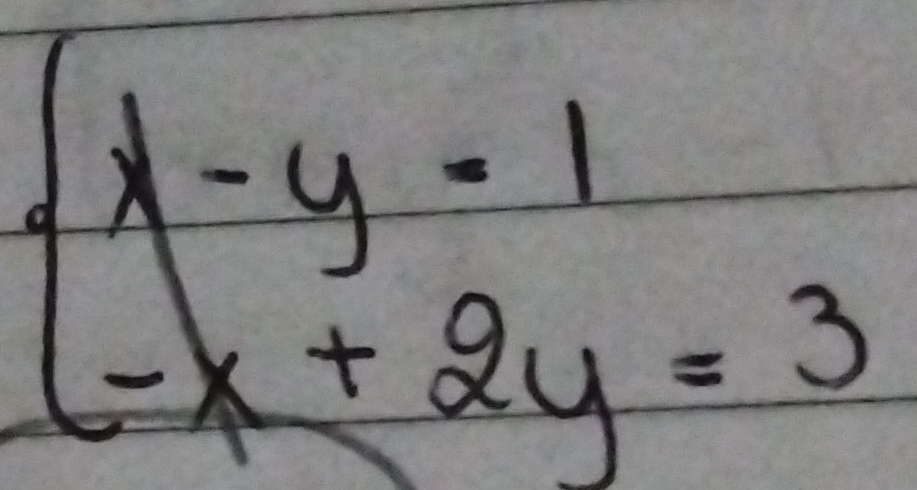 x - y = 1
-x + 2y = 3